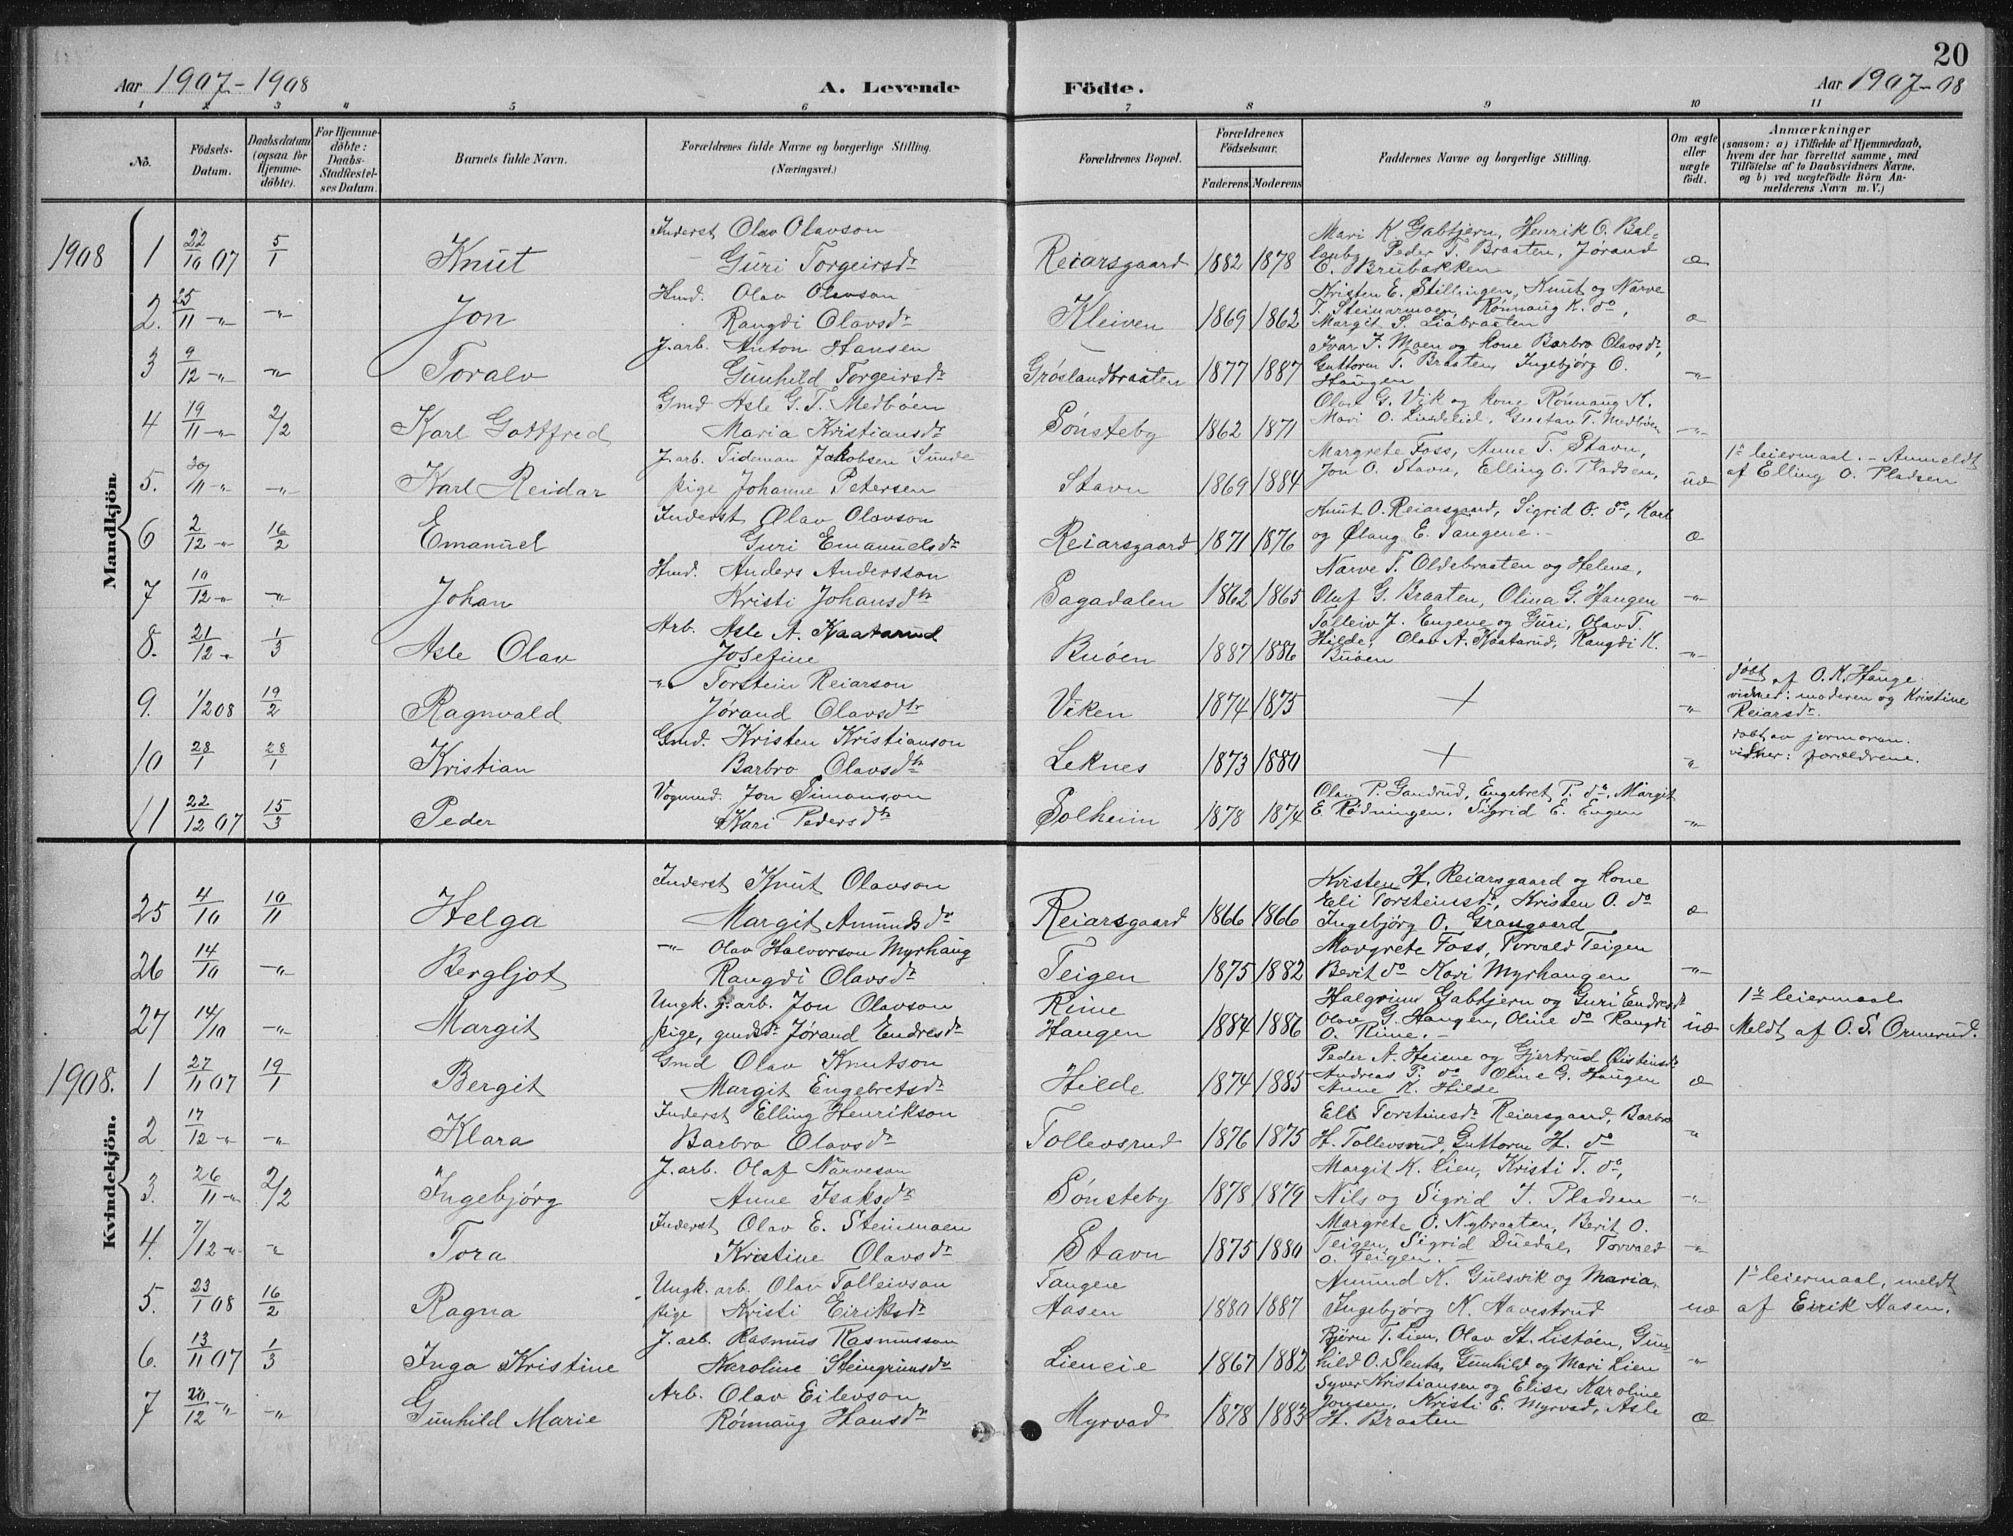 20
Aar 1907-1908 A. Levende Födte. Aar 1907-08
1 2 3 4 5 6 7 8 9 10 11
No. Födsels-Datum. Daabsdatum (ogsaa for Hjemme-döbte). For Hjemme-döbte: Daabs-Stadfæstel-ses Datum. Barnets fulde Navn. Forældrenes fulde Navne og borgerlige Stilling. (Næringsvei.) Forældrenes Bopæl. Forældrenes Födselsaar. Faderens Moderens Faddernes Navne og borgerlige Stilling. Om ægte eller uægte födt. Anmærkninger
(saasom: a) i Tilfælde af Hjemmedaab, hvem der har forrettet samme, med Tilföielse af to Daabsvidners Navne, og b) ved uægtefödte Börn An-melderens Navn m. V.)
Mandkjön.
Inderst Olav Olavson Mari K. Gabbjern, Henrik O. Bal-
1908 1 22/10 07 5/1 Knut Guri Torgeirsdr Reiarsgaard 1882 1878 Peder T. Braaten, Jørand æ
E. Brubakken
Hmd. Olav Olavson Kristen E. Stillingen, Knut og Narve
2. 25/11 -"- -"- Jon Rangdi Olavsdr Kleiven 1869 1862 T. Steinarmoen, Rønnaug K. do, æ
Margit S. Liabraaten
J.arb. Anton Hansen Ivar J. Moen og kone Barbro Olavsdr,
3 9/12 -"- -"- Toralv Gunhild Torgeirsdr Grøslandbraaten 1877 1887 Guttorm T. Braaten, Ingebjørg O. -"-
Haugen
Gmd Asle G. T. Medbøen Olav G. Vik og kone Rønnaug K.
4 19/11 -"- 2/2 Karl Gottfred Maria Kristiansdr Sønsteby 1862 1871 Mari O. Lindelid, Gustav T. Medbøen -"-
J.arb. Tideman Jakobsen Sunde Margrete Foss, Anne T. Stavn, 1ste leiermaal. - Anmeldt
5. 30/11 -"- -"- Karl Reidar pige Johanne Petersen Stavn 1869 1884 Jon O. Stavn, Elling O. Pladsen, uæ af Elling O. Pladsen
Inderst Olav Olavson Knut O. Reiarsgaard, Sigrid O. do, Karl
6 2/12 -"- 16/2 Emanuel Guri Emanuelsdr Reiarsgaard 1871 1876 og Ølaug E. Tangene. - æ
Hmd. Anders Andersson Narve T. Oldebraaten og Helene,
7 10/12 -"- -"- Johan Kristi Johansdtr Sagadalen 1862 1865 Oluf G. Braaten, Olina G. Haugen -"-
Arb. Asle A. Kaatarud Tolleiv J. Engene og Guri, Olav T.
8. 21/12 -"- 1/3 Asle Olav Josefine Buøen 1887 1886 Hilde, Olav A. Kaatarud, Rangdi K. -"-
Buøen
-"- Torstein Reiarson døbt af O. K. Hauge.
9. 1/2 08 19/2 Ragnvald Jørand Olavsdtr Viken 1874 1875 + -"- vidner: moderen og Kristine
Reiarsdr.
Gmd. Kristen Kristianson døbt av jormoren.
10 28/1 28/1 Kristian Barbro Olavsdtr Leknes 1873 1880 + -"- vidner: forældrene.
Vognmd. Jon Simonson Olav P. Gandrud, Engebret P. do, Margit
11 22/12 07 15/3 Peder Kari Pedersdtr Solheim 1878 1874 E. Rødningen, Sigrid E. Engen -"-
Kvindekjön.
Inderst Knut Olavson Kristen H. Reiarsgaard og kone
25 4/10 10/11 Helga Margit Amundsdr Reiarsgaard 1866 1866 Eli Torsteinsdr, Kristen O. do æ
Ingebjørg O. Grasgaard
-"- Olav Halvorson Myrhaug Margrete Foss, Torvald Teigen
26 14/10 -"- Bergljot Rangdi Olavsdr Teigen 1875 1882 Berit do Kari Myrhaugen -"-
Ungk. j.arb. Jon Olavson Rime Halgrim Gabbjern og Guri Endresdr 1ste leiermaal
27 14/10 -"- Margit pige, gmdsdr Jørand Endresdr Haugen 1884 1886 Olav G. Haugen, Oline do Rangdi uæ Meldt af O. S. Ormerud.
O. Rime. -
Gmd Olav Knutson Peder A. Heiene og Gjertrud
1908. 1 27/11 07 19/1 Bergit Margit Engebretsdr Hilde 1874 1885 Andreas P. do Oline G. Haugen æ
Anne K. Hilde
Inderst Elling Henrikson Eli Torstinsdr Reiarsgaard, Barbro
2 17/12 -"- -"- Klara Barbro Olavsdr Tollevsrud 1876 1875 H. Tollevsrud, Guttorm H. do -"-
J.arb. Olaf Narveson Margit K. Lien, Kristi T. do,
3. 26/11 -"- 2/2 Ingebjørg Anne Isaksdr Sønsteby 1878 1879 Nils og Sigrid J. Pladsen -"-
Inderst Olav E. Steinmoen Margrete O. Nybraaten, Berit O.
4. 7/12 -"- -"- Tora Kristine Olavsdr Stavn 1875 1880 Teigen, Sigrid Duedal, Torvald -"-
O. Teigen. -
Ungk. arb. Olav Tolleivson Tangene Amund K. Gulsvik og Maria, 1ste leiermaal, meldt
5. 23/1 08 16/2 Ragna pige Kristi Eiriksdr Aasen 1880 1887 Ingebjørg N. Aavestrud uæ af Eirik Aasen.
J.arb. Rasmus Rasmusson Bjørn T. Lien, Olav St. Listøen, Gun-
6. 13/11 07 1/3 Inga Kristine Karoline Steingrimsdr Lieneie 1867 1882 hild O. Slenta, Gunhild og Mari Lien -"-
Arb. Olav Eilevson Syver Kristiansen og Elise Karoline
7 20/12 -"- -"- Gunhild Marie Rønnaug Hansdtr Myrvad 1878 1883 Jonsen, Kristi E. Myrvad, Asle æ
H. Braaten